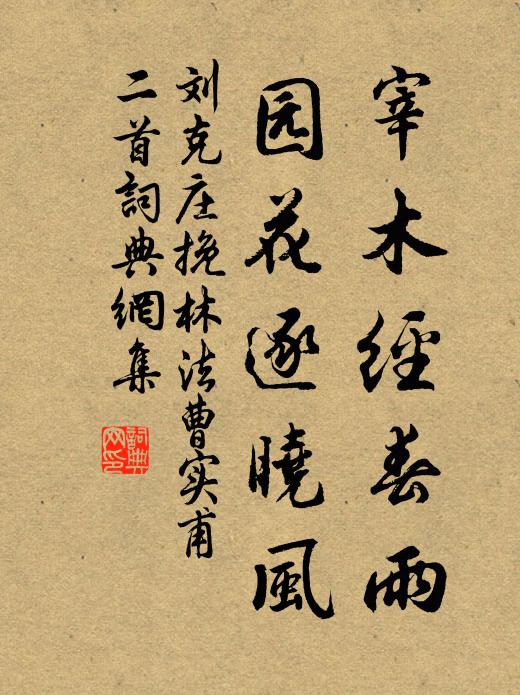 宰木經春雨
园花逐曉風
刘克庄挽林法曹实甫
二首詞典網集
詞典網印